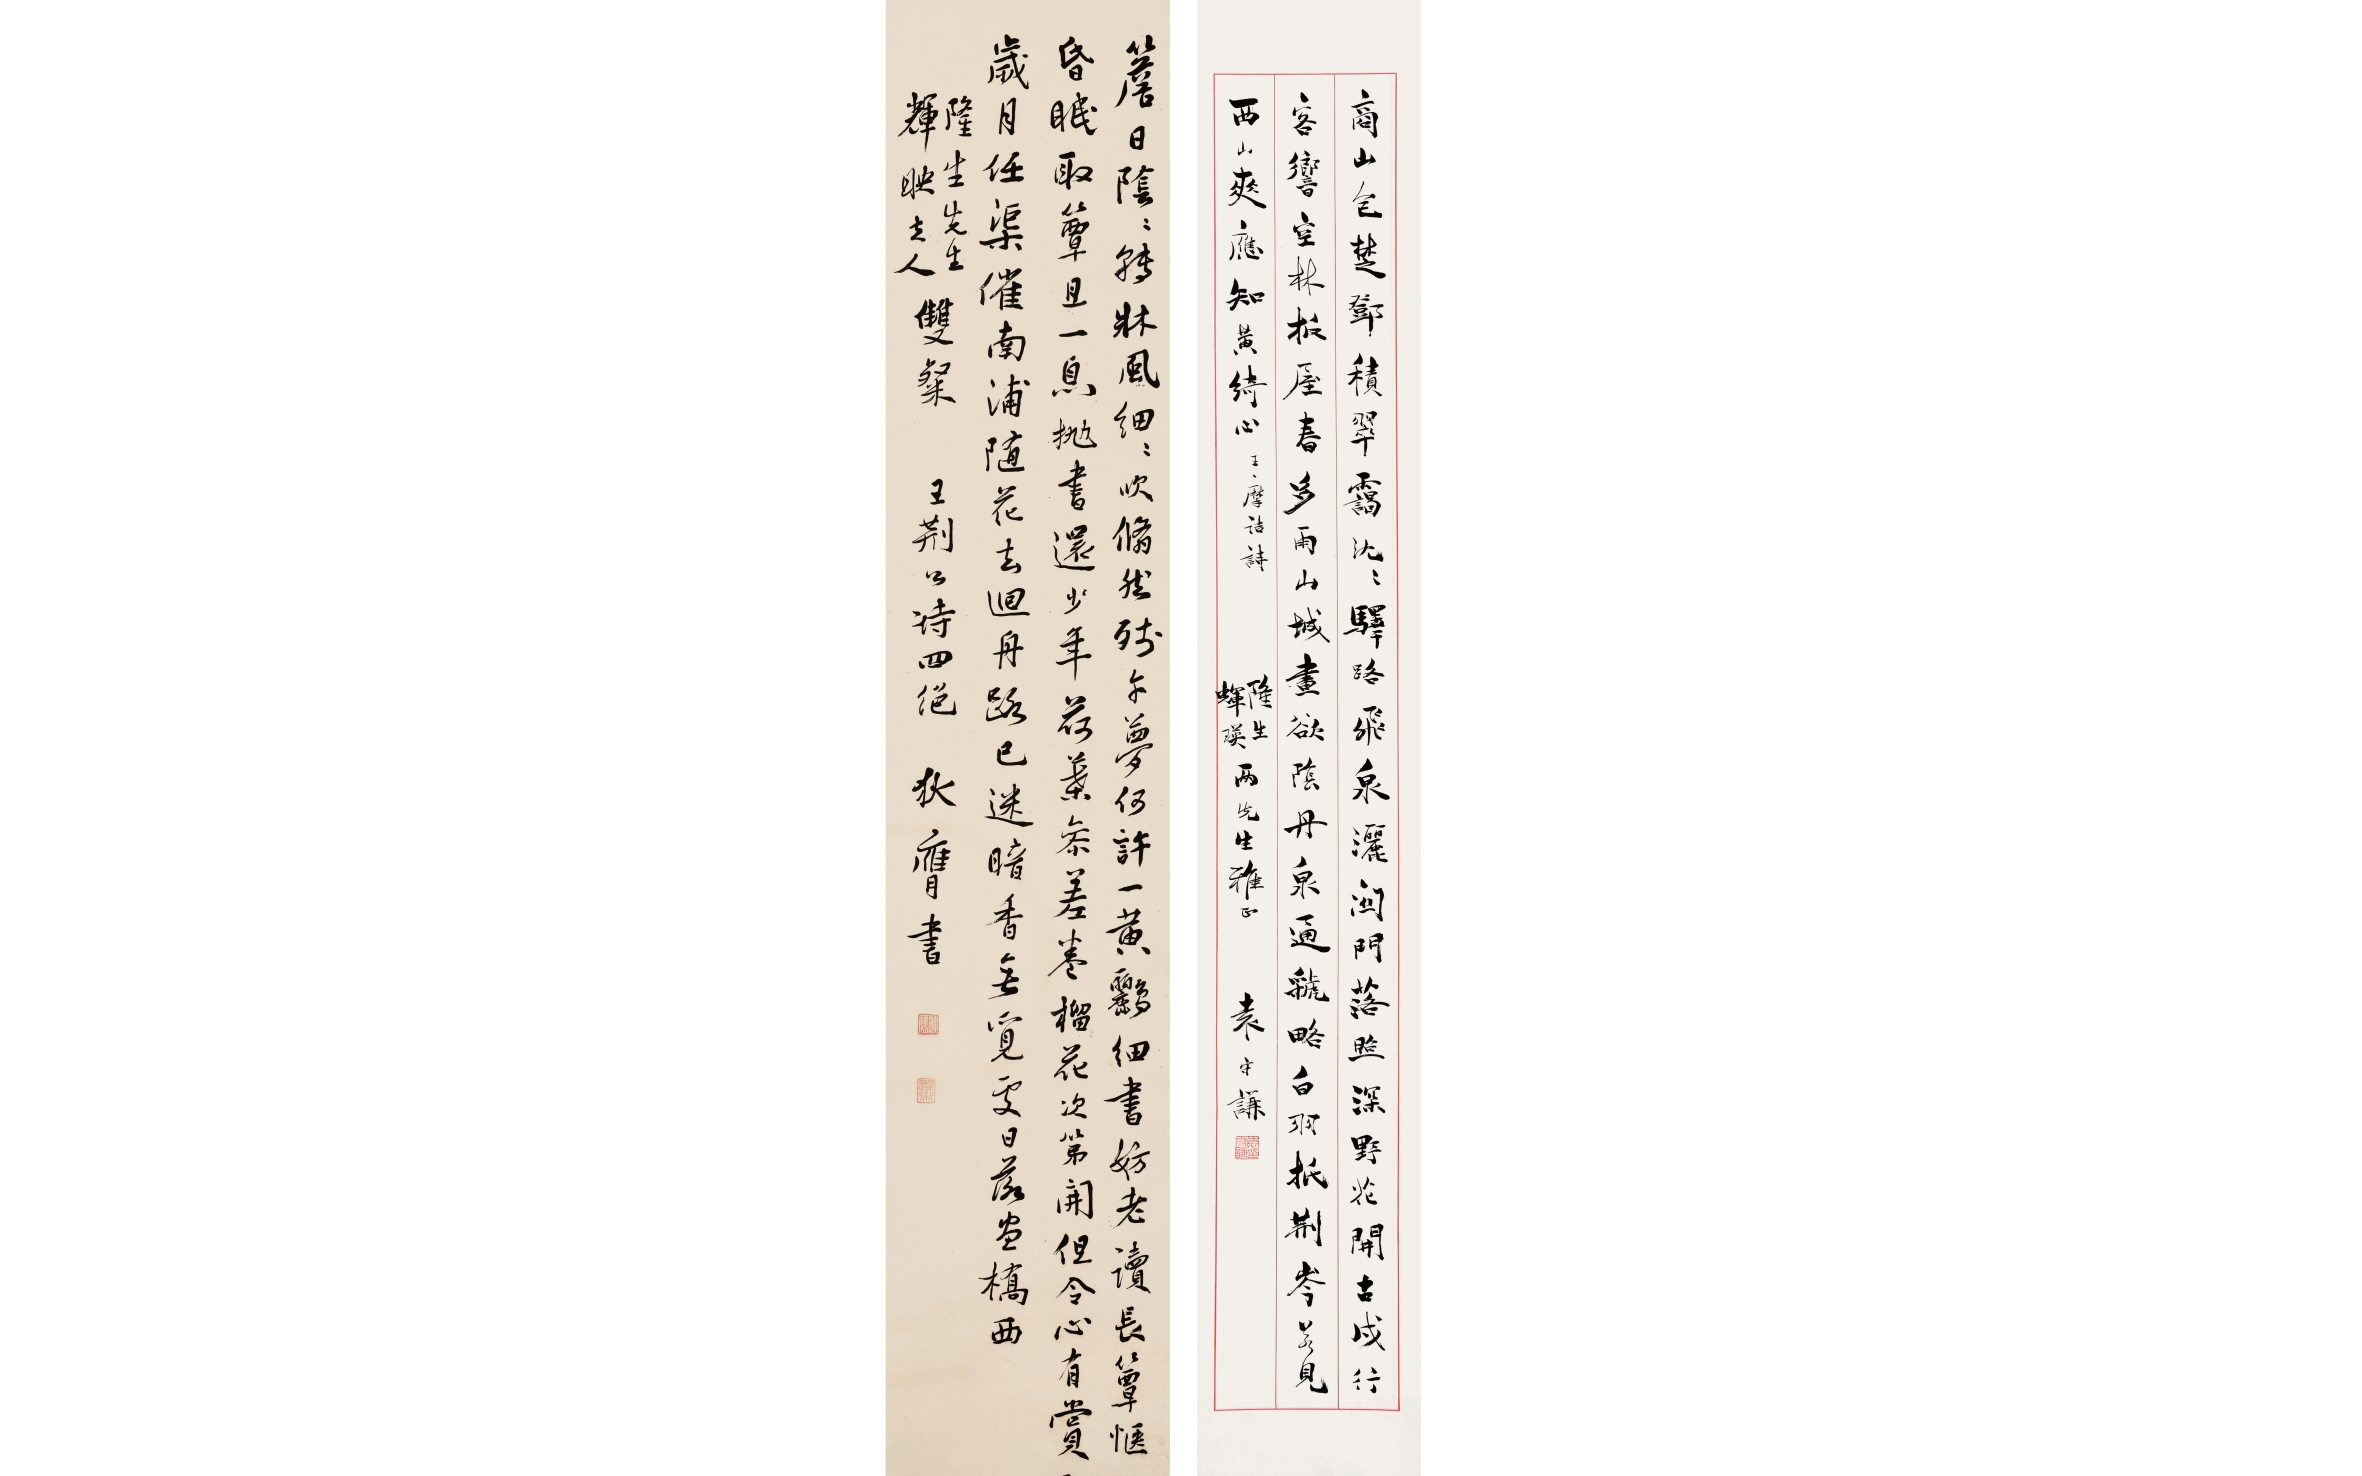 商山包楚鄧積翠靄沈〻驛路飛泉灑関門落照深野花開古戍行
客響空林板屋春多雨山城晝欲陰丹泉通虢略白羽抵荆岑若見
西山爽應知黄綺心 王摩詰詩
隆生
輝瑛
两先生雅正 袁守謙
簷日陰〻轉牀風細〻吹翛然殘午夢何許一黄鸝細書妨老讀長簟愜
昏眠取簟且一息抛書還少年荷葉參差卷榴花次第開但令心有賞
歲月任渠催南浦随花去迴舟路已迷暗香無覓處日落畫橋西
隆生先生
輝映夫人
雙粲 王荆公詩四絶 狄膺書